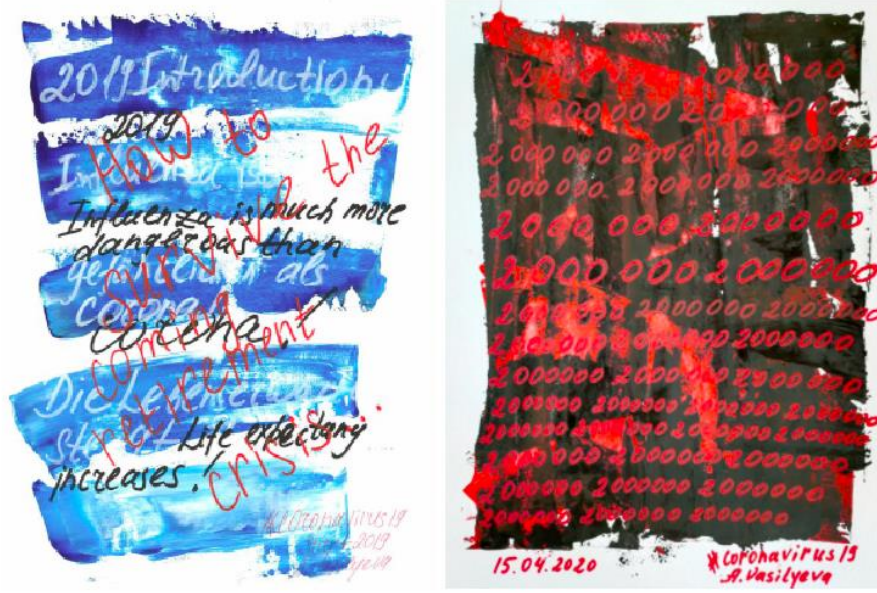 2019 Introduction
2019
Influenza is much more
dangerous than
als
corona
corona!
Die
Life expectany
increases!
How to
survive the
coming
retirement
crisis...
#Coronavirus19
2019
2000000 2000000
2000000 2000000
2000000 2000000 2000000
2000000 2000000 2000000
2000000 2000000
2000000 2000000
2000000 2000000 2000000
2000000 2000000 2000000
2000000 2000000 2000000
2000000 2000000 2000000 2000000
2000000 2000000 2000000 2000000
2000000 2000000 2000000
2000000 2000000 2000000
2000000 2000000 2000000
15.04.2020
#Coronavirus19
A.Vasilyeva